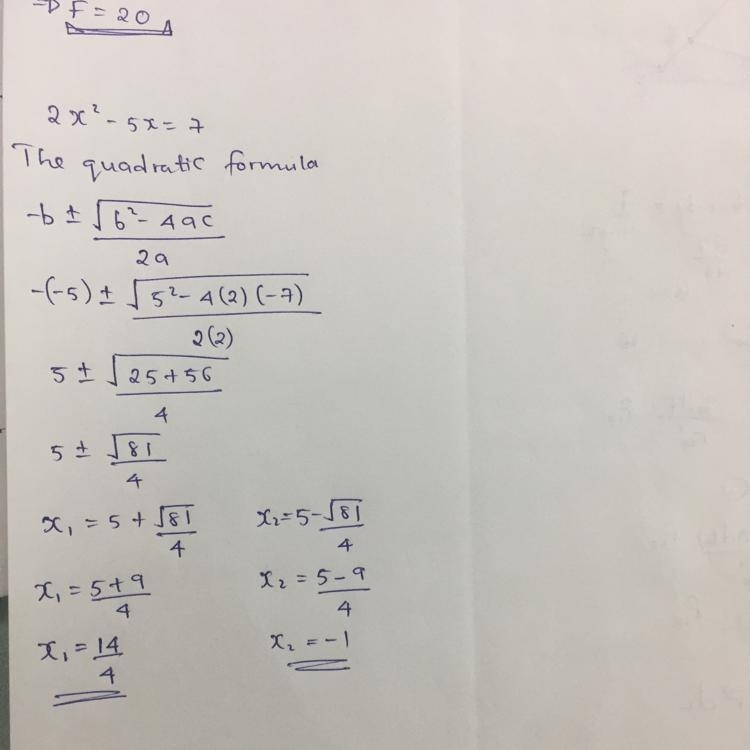 → F = 20
2x² - 5x = 7
The quadratic formula
-b ± √(b² - 4ac)/2a
-(-5) ± √(5² - 4(2)(-7))/2(2)
5 ± √(25 + 56)/4
5 ± √81/4
x₁ = 5 + √81/4 x₂ = 5 - √81/4
x₁ = (5 + 9)/4 x₂ = (5 - 9)/4
x₁ = 14/4 x₂ = -1